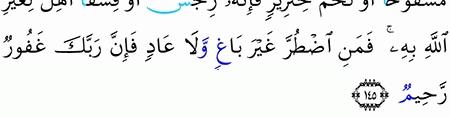 مَّسْفُوحًا أَوْ لَحْمَ خِنزِيرٍ فَإِنَّهُۥ رِجْسٌ أَوْ فِسْقًا أُهِلَّ لِغَيْرِ
ٱللَّهِ بِهِۦ ۚ فَمَنِ ٱضْطُرَّ غَيْرَ بَاغٍ وَلَا عَادٍ فَإِنَّ رَبَّكَ غَفُورٌ
رَّحِيمٌ ١٤٥